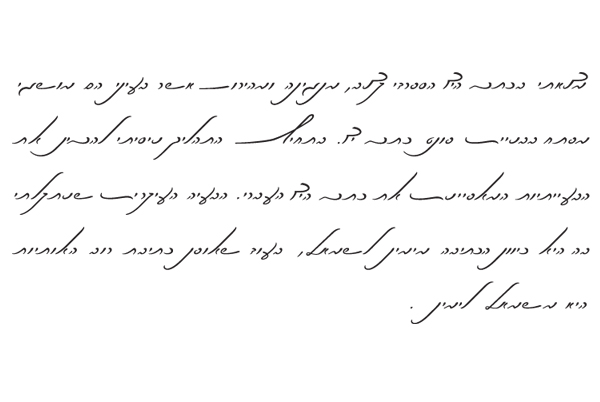 מצאתי בכתב היד הספרדי קצב, מנגינה ומהירות אשר בעיני הם מושגי
מפתח בבניית פונט כתב יד. בתחילת התהליך ניסיתי להבין את
הבעייתיות המאפיינת את כתב היד העברי. הבעיה העיקרית שנתקלתי
בה היא כיוון הכתיבה מימין לשמאל, בעוד שאופן כתיבת רוב האותיות
היא משמאל לימין .